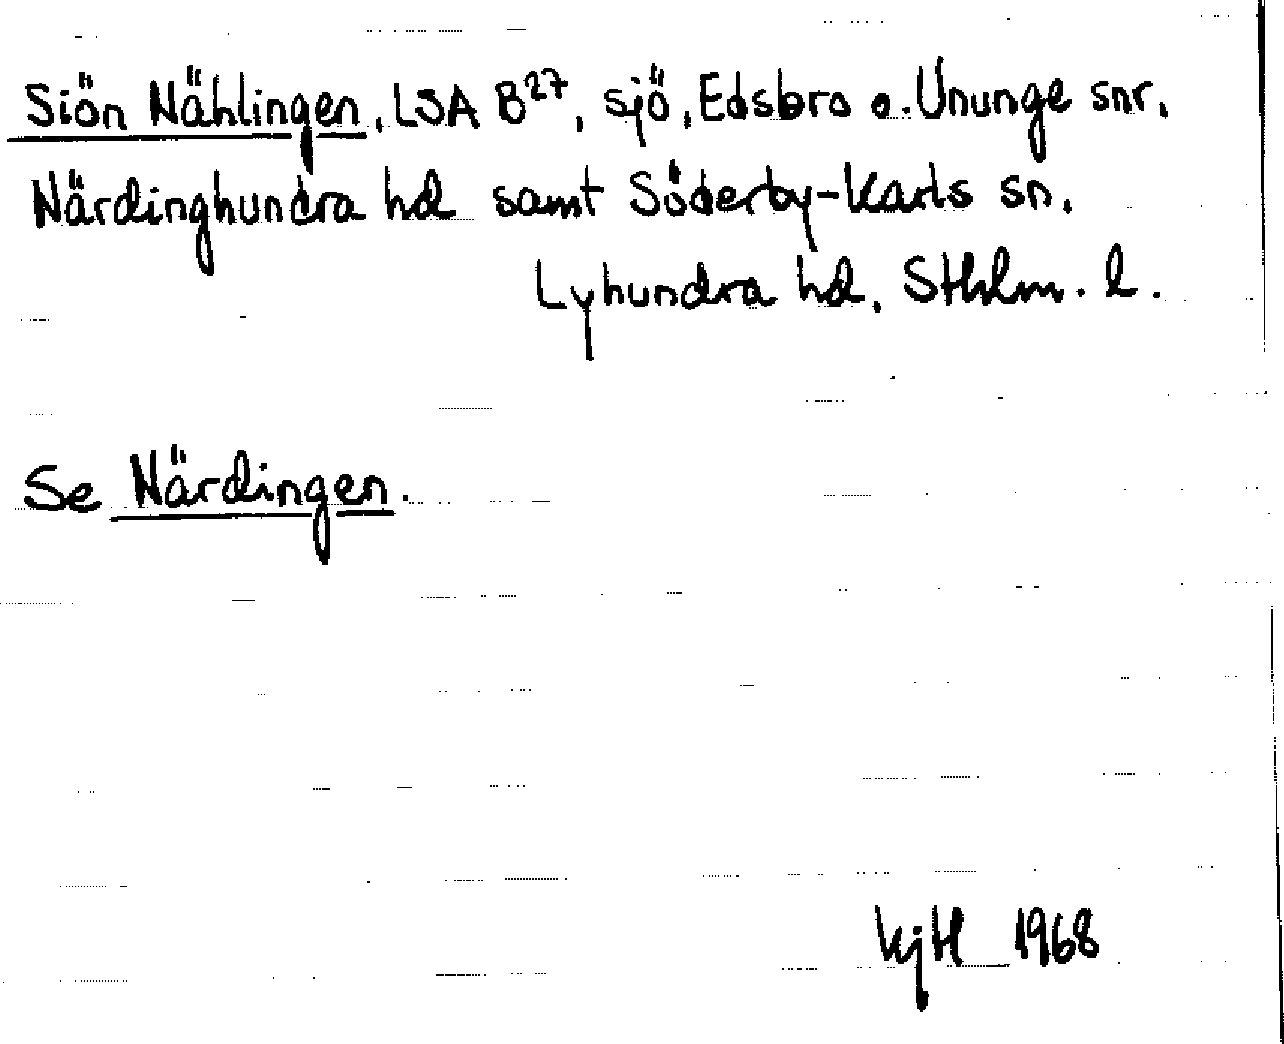 Siön Nählingen, LSA B27, sjö, Edsbro o. Ununge snr.
Närdinghundra hd samt Söderby-Karls sn.
Lyhundra hd, Sthlm. l.
Se Närdingen.
KjH 1968